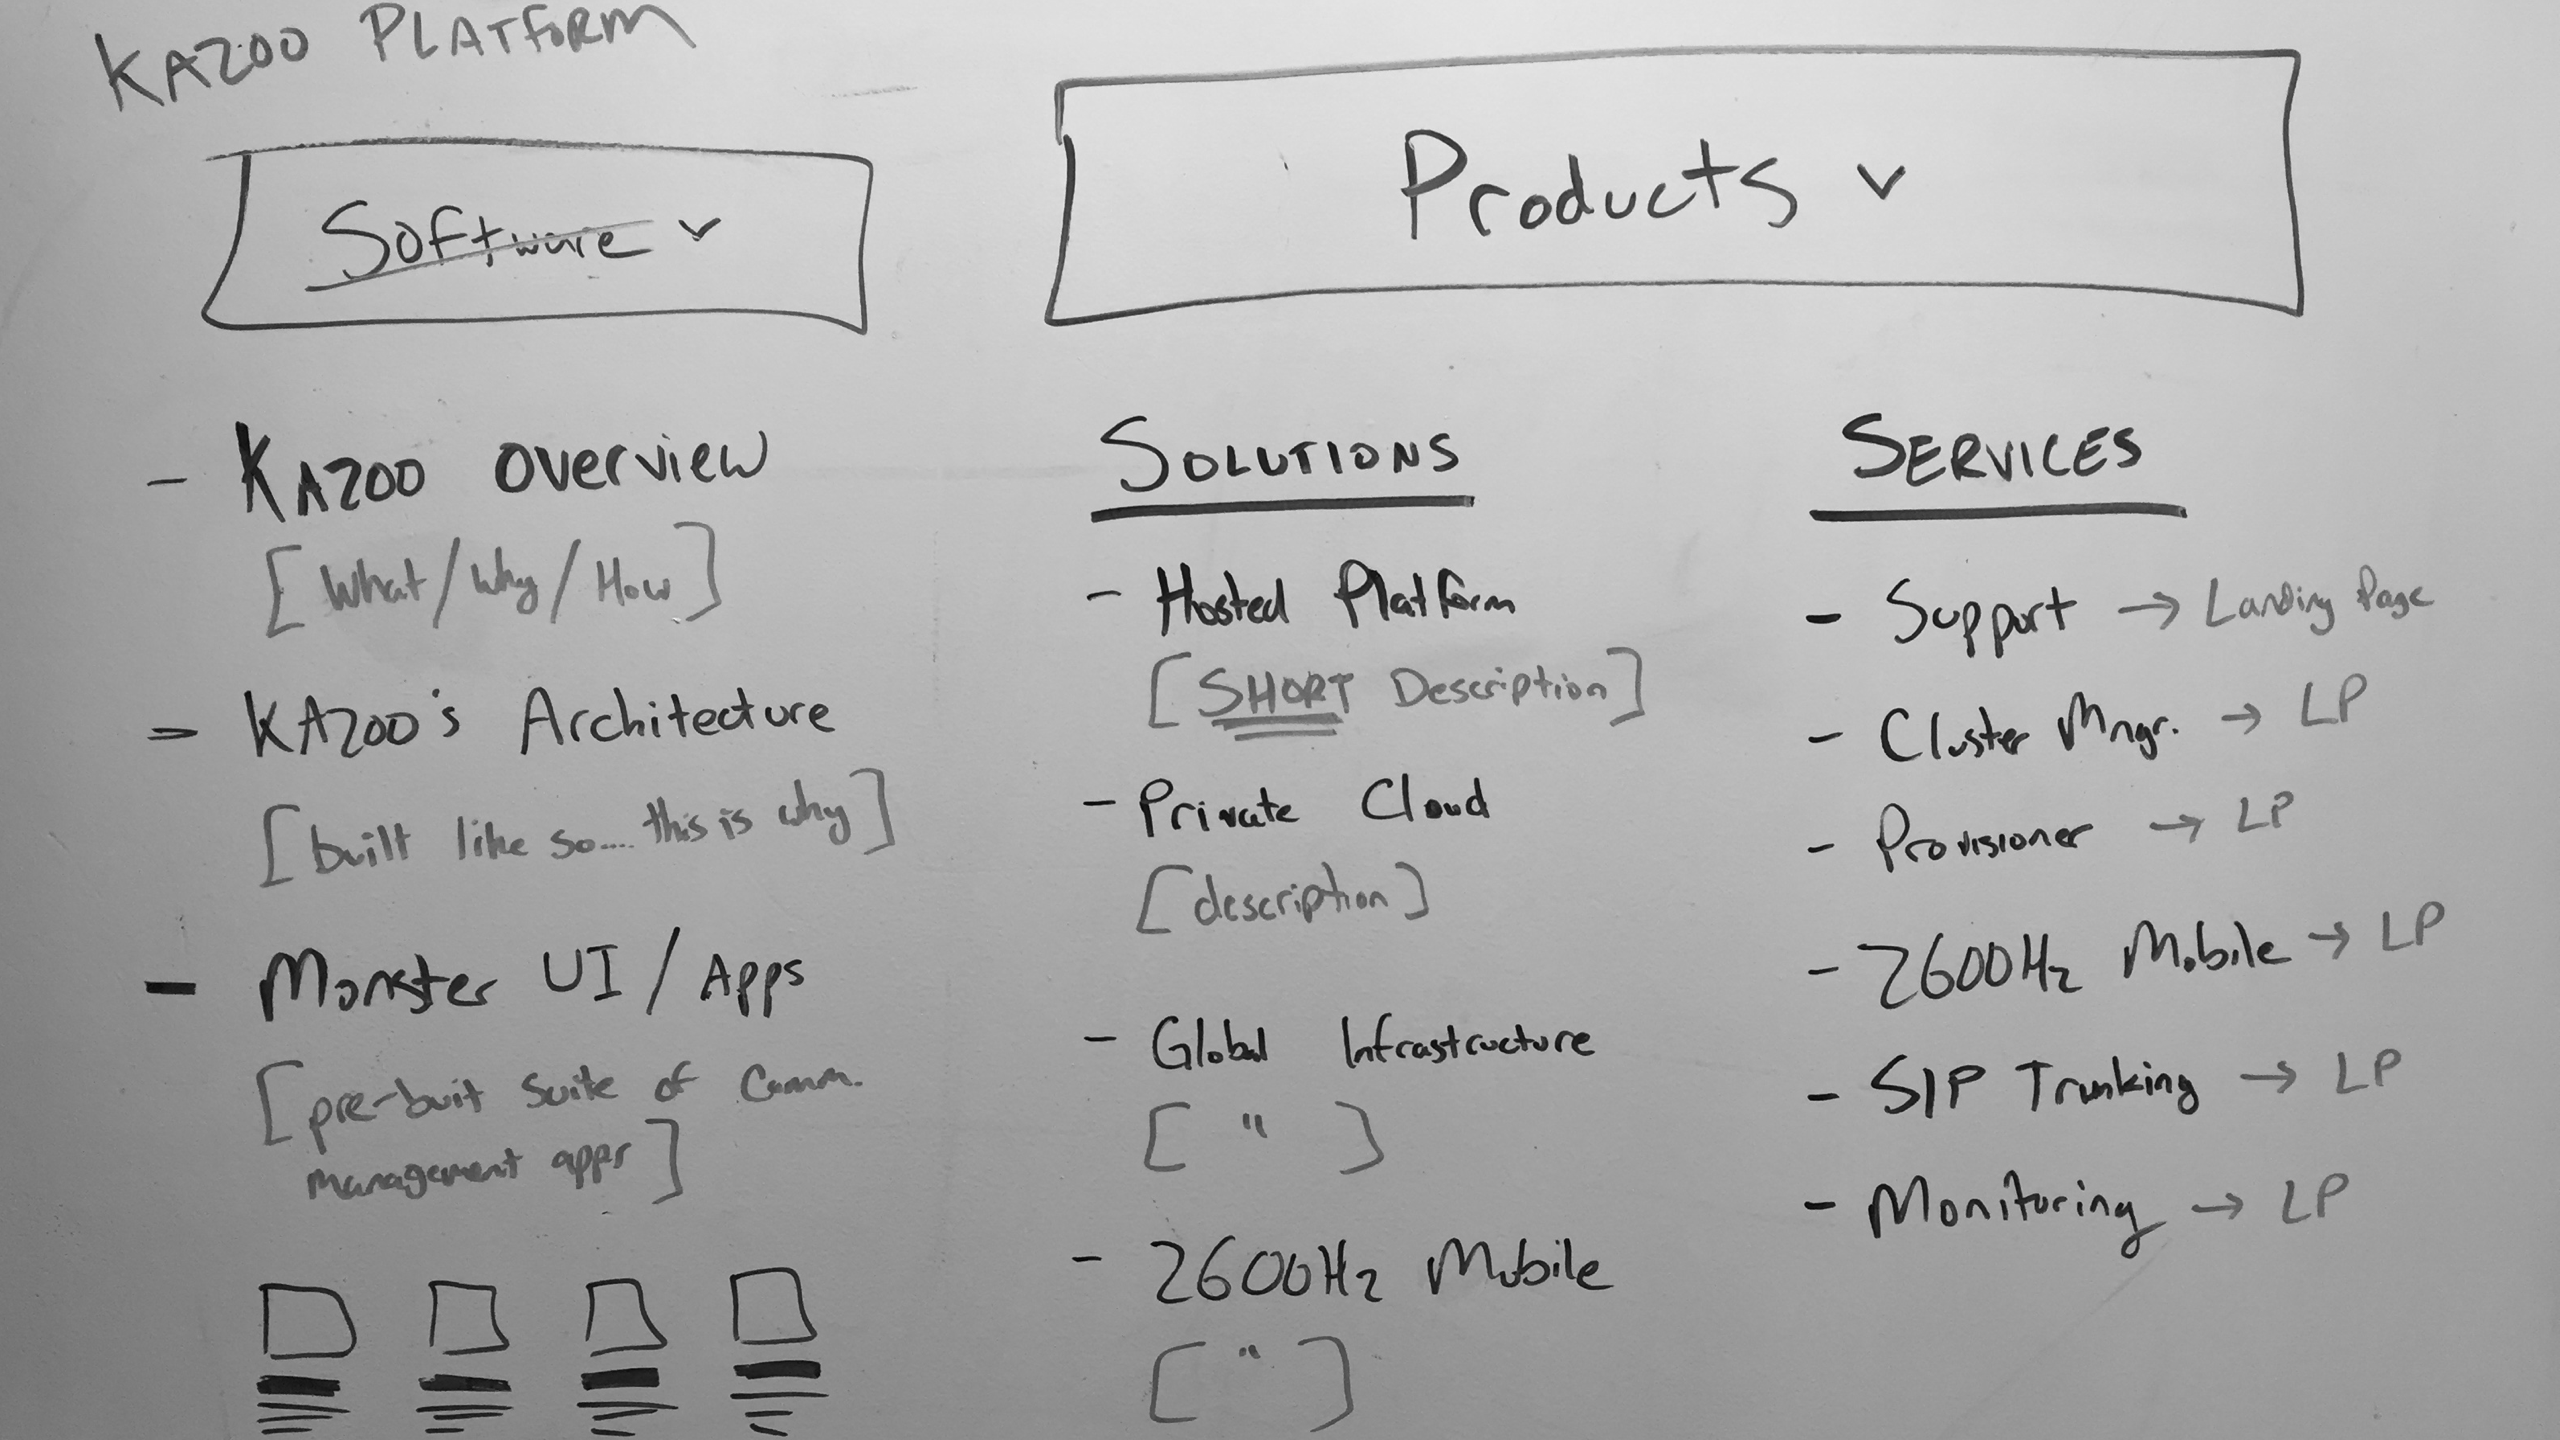 KAZOO PLATFORM
Software
Products
- KAZOO overview
[What/Why/How]
- KAZOO's Architecture
[built like so.... this is why]
- Monster UI / Apps
[pre-buit suite of Comm.
management apps]
SOLUTIONS
- Hosted Platform
[SHORT Description]
- Private Cloud
[description]
- Global Infrastructure
[ " ]
- 2600Hz Mobile
[ " ]
SERVICES
- Support → Landing Page
- Cluster Mngr. → LP
- Provisioner → LP
- 2600Hz Mobile → LP
- SIP Trunking → LP
- Monitoring → LP